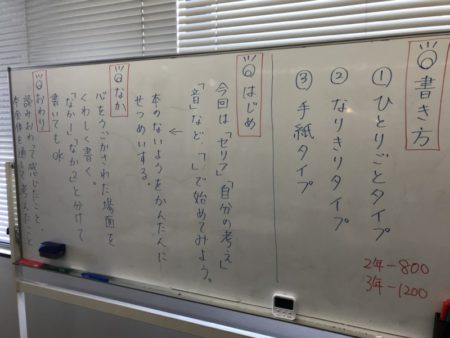 書き方
①ひとりごとタイプ
②なりきりタイプ
③手紙タイプ
2年-800
3年-1200
はじめ
今回は「セリフ」「自分の考え」
「音」など、「」で始めてみよう。
↓
本のないようをかんたんに
せつめいする。
なか
心をうごかされた場面を
くわしく書く。
「なか1」「なか2」と分けて
書いてもOK
おわり
読みおわって感じたこと、
本全体を通して考えたこと